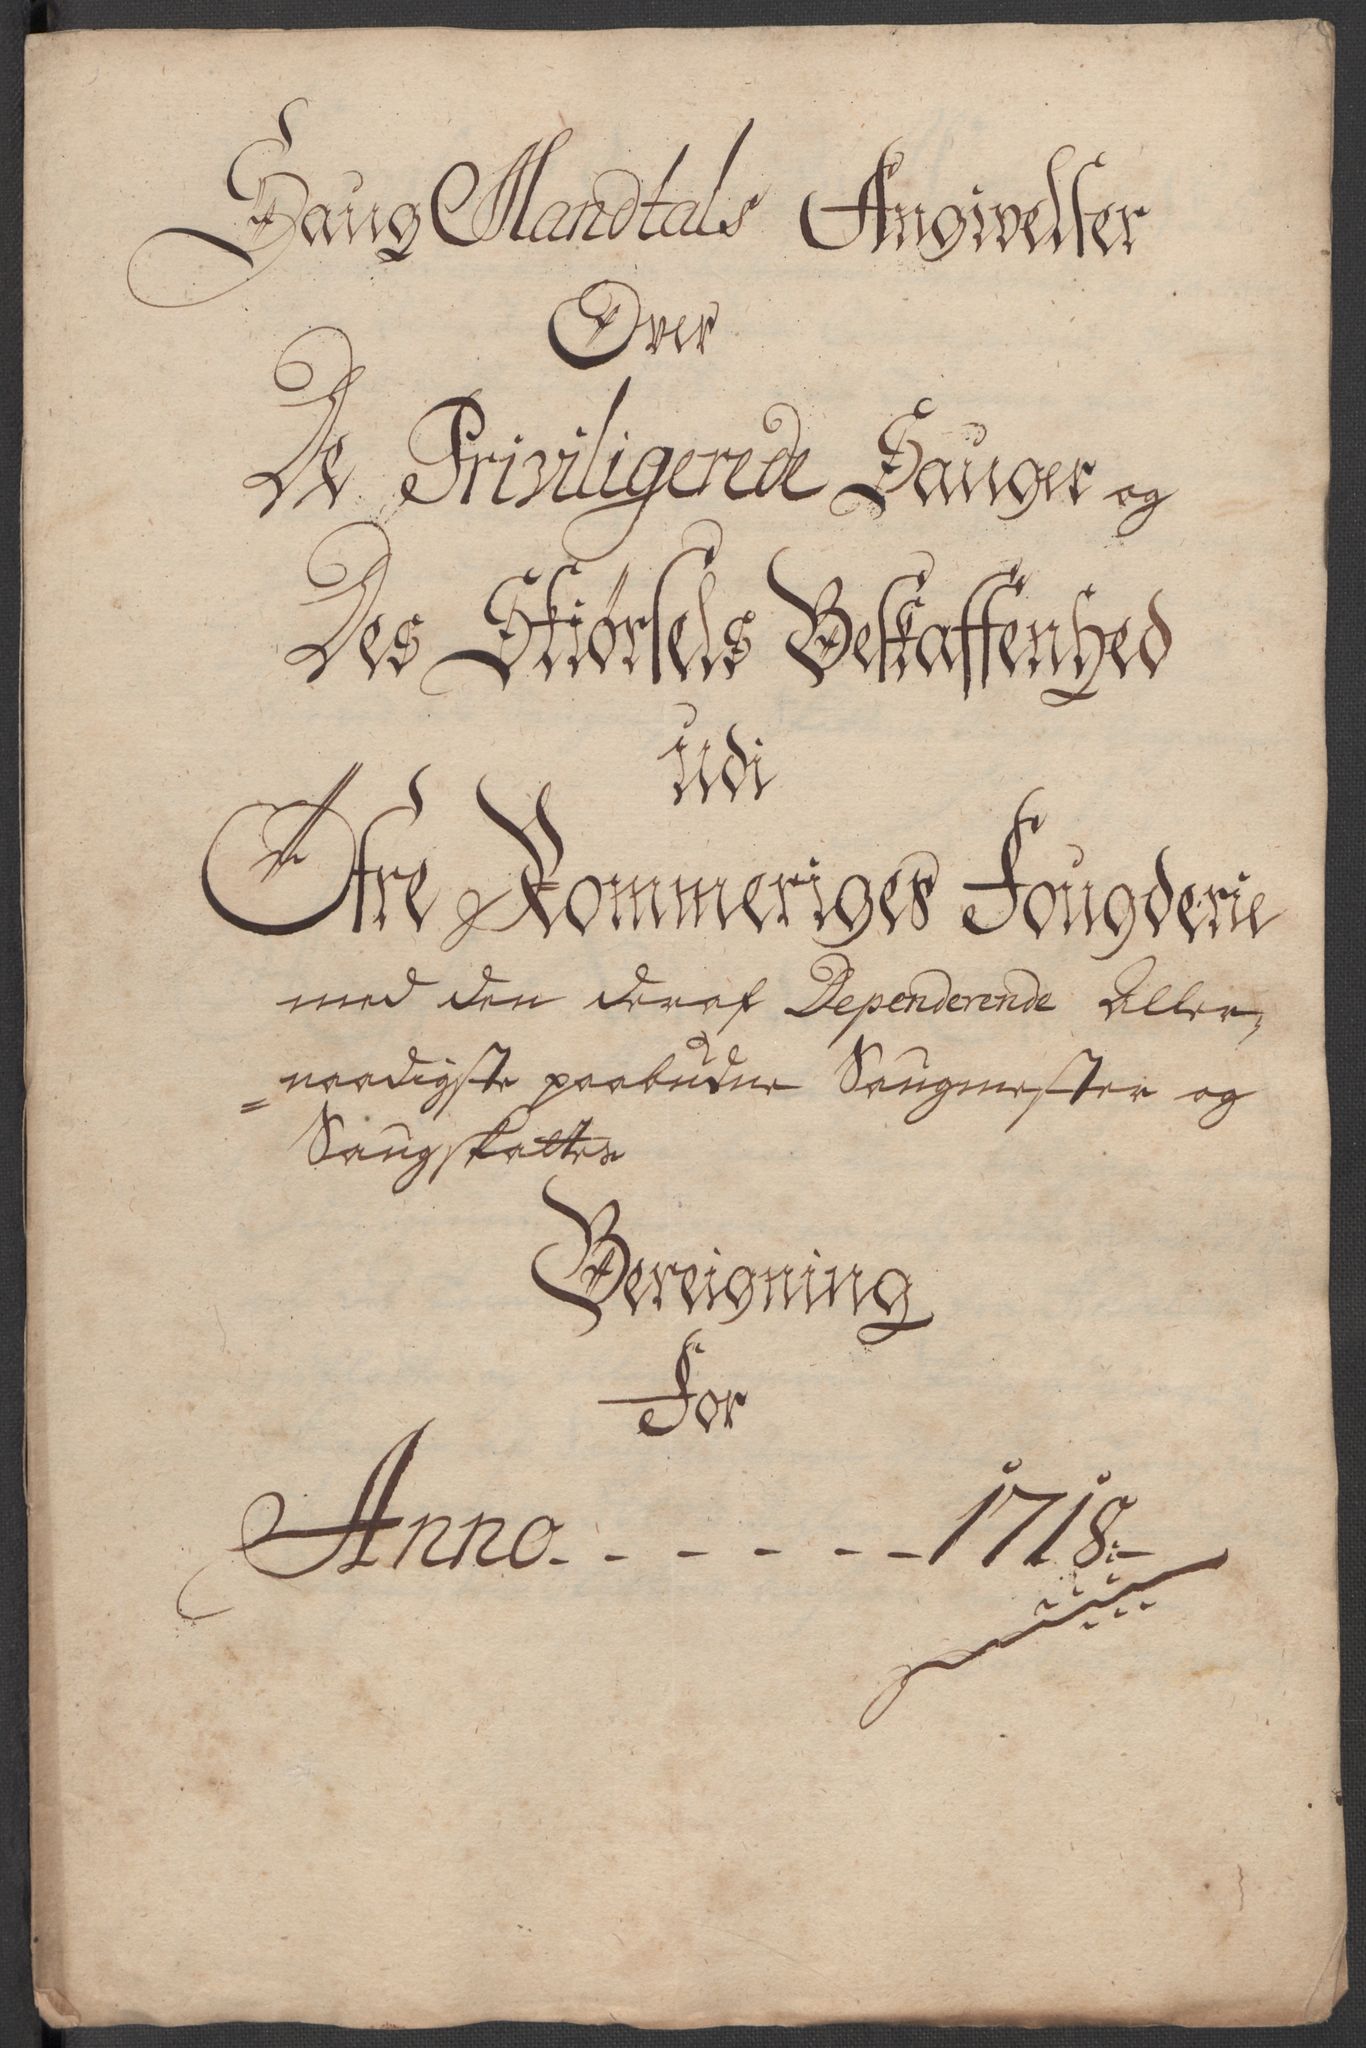 Saug Mandtals Angivelser
Over
De Priviligerede Sauger og
Des Skiørsels Beskaffenhed
udi
Øfre Rommeriges Fougderie
med den deraf Dependerende Aller,
=naadigste paabudne Saugmester og
Saugskatter
Bereigning
For
Anno - - - - - - 1718:-